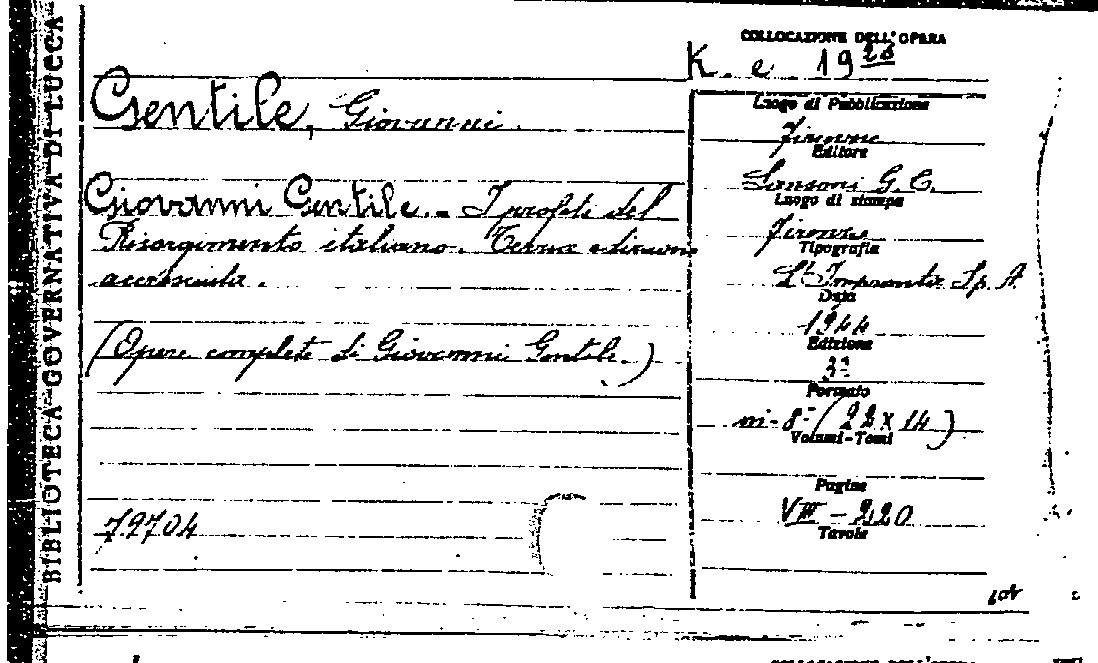 BIBLIOTECA GOVERNATIVA DI LUCCA
COLLOCAZIONE DELL'OPERA
K. e 19
Gentile, Giovanni.
Giovanni Gentile. - I profeti del
Risorgimento italiano. Terza edizione
accresciuta.
(Opere complete di Giovanni Gentile.)
79704
Luogo di Pubblicazione
Firenze
Editore
Sansoni G. C.
Luogo di stampa
Firenze
Tipografia
L'Impronta Sp. A
Data
1944
Edizione
3ª
Formato
in-8° (22 x 14)
Volumi-Tomi
Pagine
VIII - 220
Tavole